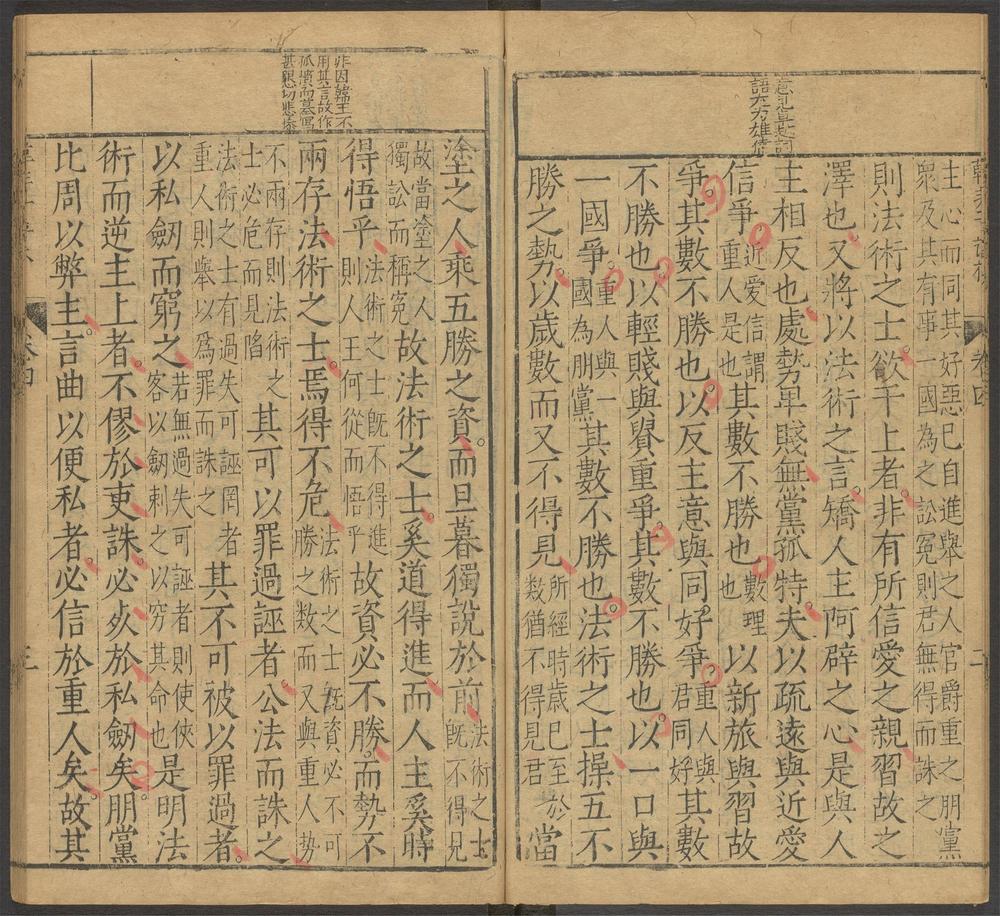 意見卓越詞
語太方雄偉
主心而同其好惡巳自進舉之人官爵重之朋黨
衆及其有事一國為之訟冤則君無得而誅之
則法術之士欲干上者非有所信愛之親習故之
澤也又將以法術之言矯人主阿辟之心是與人
主相反也處勢卑賤無黨孤特夫以疏遠與近愛
信爭
近愛信謂
重人是也
其數不勝也
數理
也
以新旅與習故
爭其數不勝也以反主意與同好爭
重人與
君同好
其數
不勝也以輕賤與貴重爭其數不勝也以一口與
一國爭
重人與一
國為朋黨
其數不勝也法術之士操五不
勝之勢以歲數而又不得見
所經時歲巳至於
数猶不得見君
當
非因韓王不
用其言故作
孤憤而摹寫
甚懇切悲愴
塗之人乘五勝之資而旦暮獨說於前
法術之士
既不得見
故當塗之人
獨訟而稱冤
故法術之士奚道得進而人主奚時
得悟乎
法術之士既不得進
則人王何從而悟乎
故資必不勝而勢不
兩存法術之士焉得不危
法術之士既資必不可
勝之数而又與重人势
不兩存則法術之
士必危而見陷
其可以罪過誣者公法而誅之
法術之士有過失可誣罔者
重人則舉以為罪而誅之
其不可被以罪過者
以私劒而窮之
若無過失可誣者則使俠
客以劒刺之以穷其命也
是明法
術而逆主上者不僇於吏誅必死於私劒矣朋黨
比周以弊主言曲以便私者必信於重人矣故其